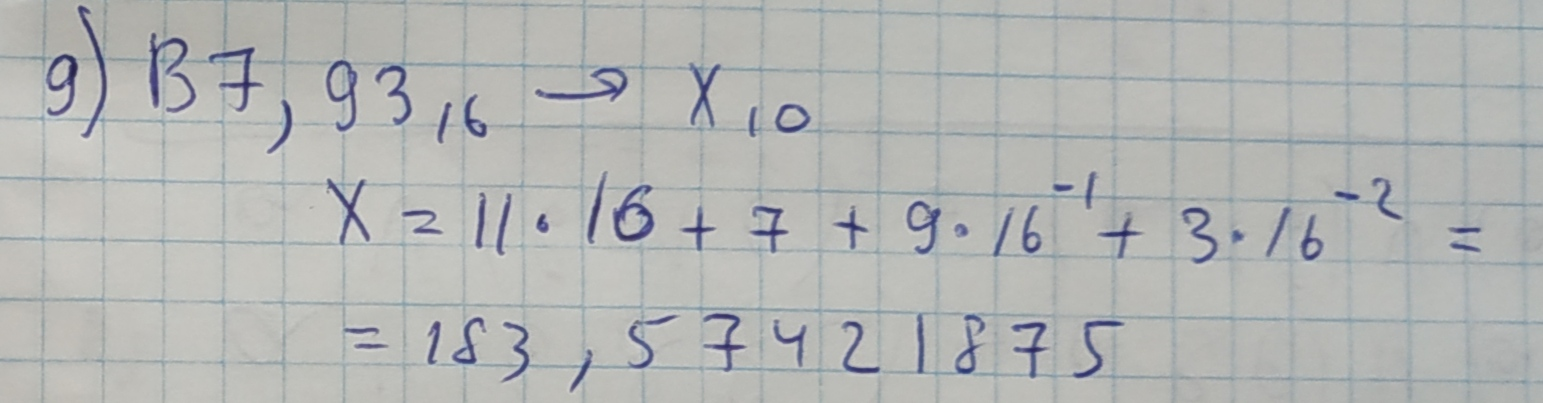 g) B7,93₁₆ → X₁₀
X = 11 · 16 + 7 + 9 · 16⁻¹ + 3 · 16⁻² =
= 183,57421875